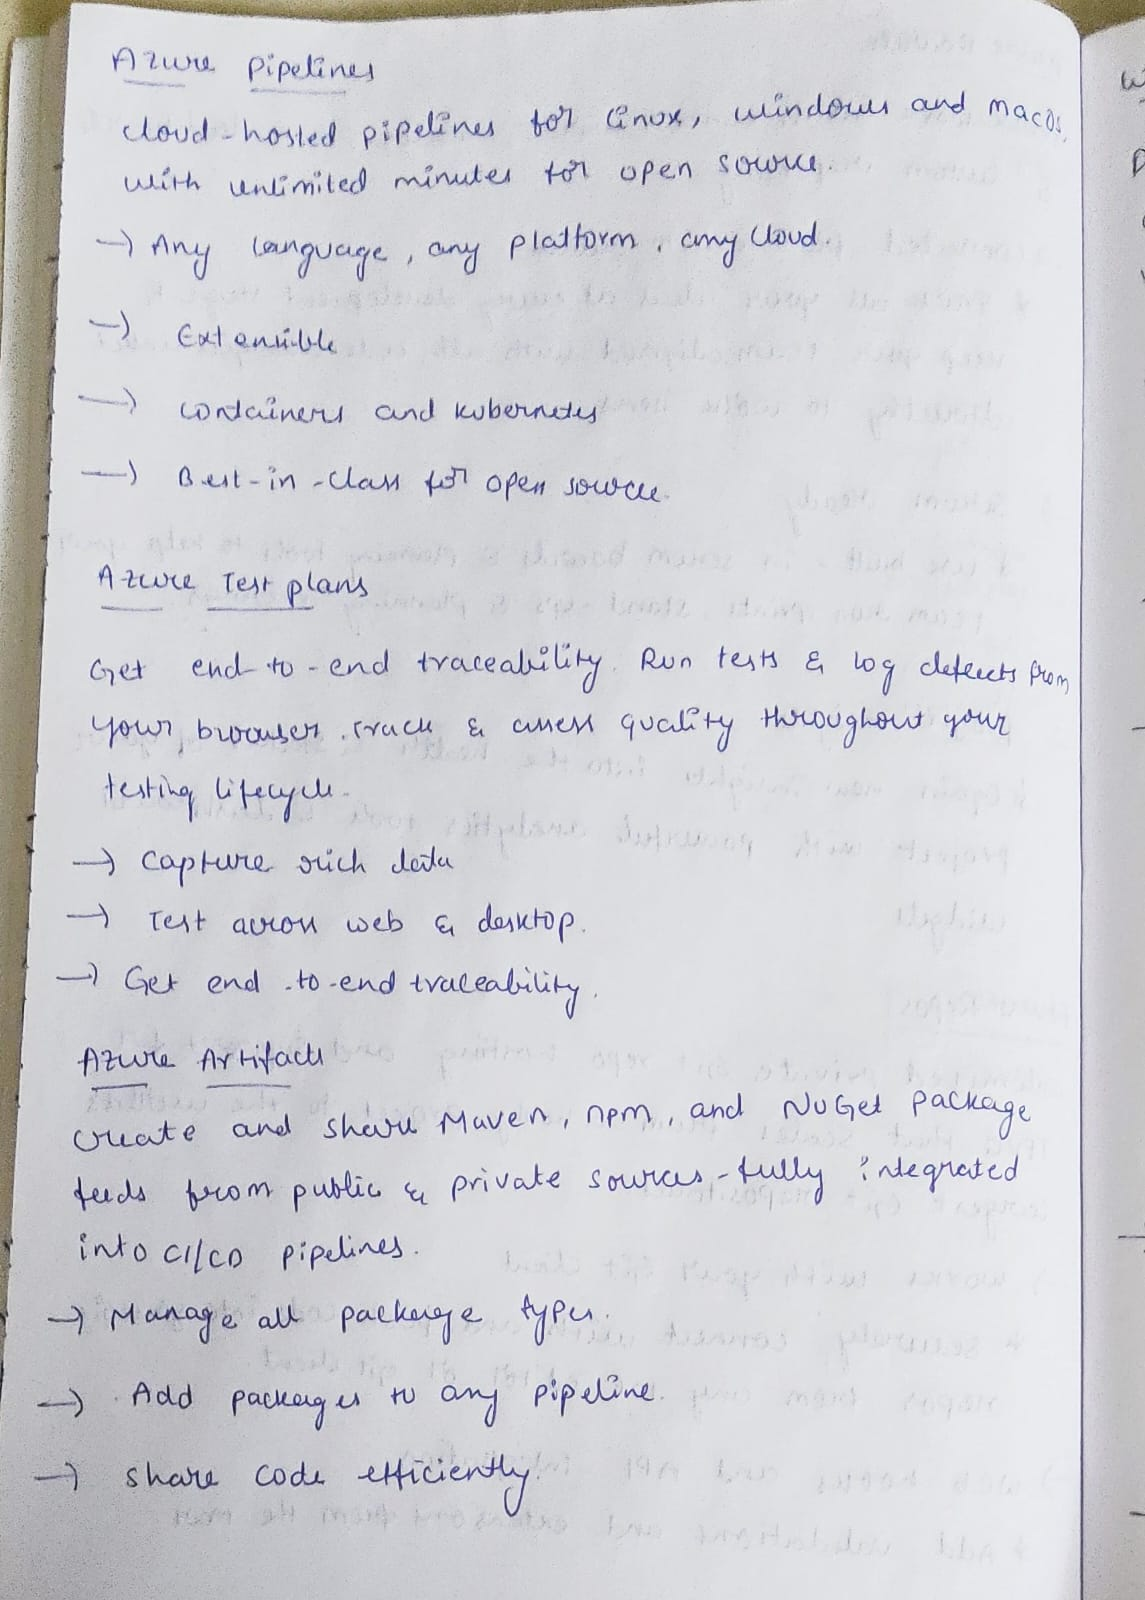 Azure Pipelines
cloud-hosted pipelines for Linux, windows and MacOS,
with unlimited minutes for open source.
→ Any language, any platform, any cloud.
→ Extensible
→ containers and kubernetes
→ Best-in-class for open source.
Azure Test plans
Get end-to-end traceability. Run tests & log defects from
your browser. Track & assess quality throughout your
testing lifecycle.
→ Capture rich data
→ Test across web & desktop.
→ Get end-to-end traceability.
Azure Artifacts
create and share Maven, npm, and NuGet package
feeds from public & private sources - fully integrated
into CI/CD pipelines.
→ Manage all package types.
→ Add packages to any pipeline.
→ share code efficiently.